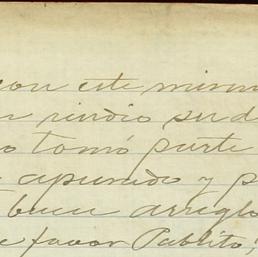 con este mism
rindio su d
o tomó parte
apurado y p
buen arreglo
e favor Pablito,